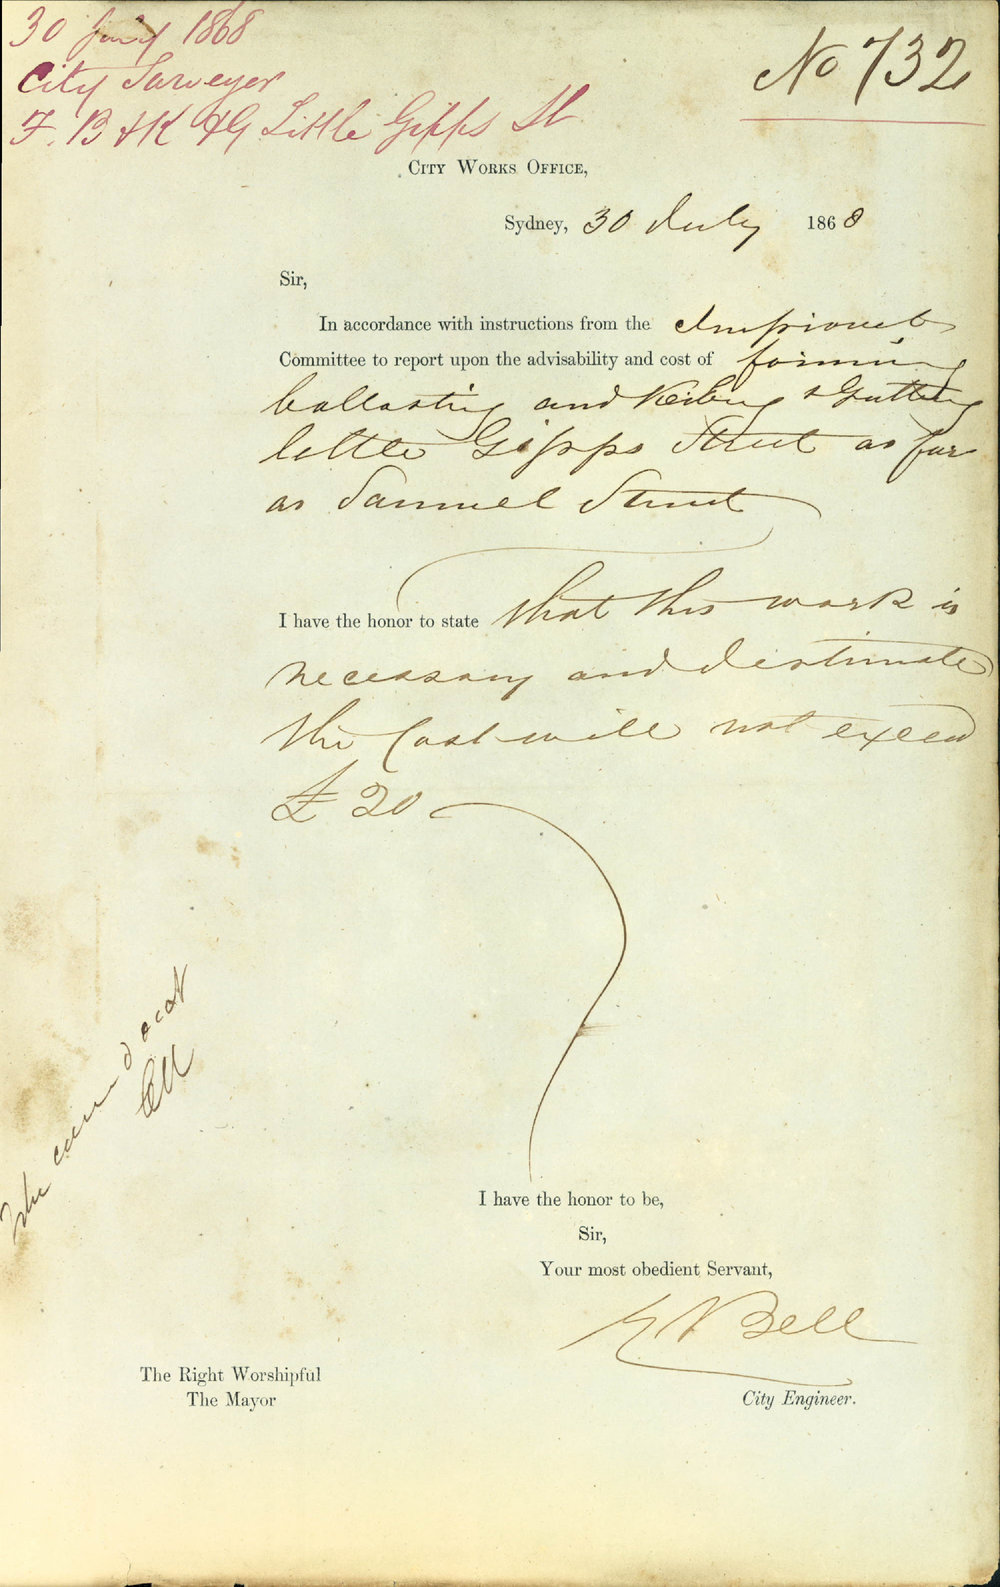 30 July 1868
City Surveyor
F. B & K & G Little Gipps St
No 732
CITY WORKS OFFICE,
Sydney, 30 July 1868
Sir,
In accordance with instructions from the Improvet
Committee to report upon the advisability and cost of forming
ballasting and Kerbing & Guttering
little Gipps Street as far
as Samuel Street
I have the honor to state that this work is
necessary and I estimate
the Cost will not exceed
£ 20
I have the honor to be,
Sir,
Your most obedient Servant,
Bell
City Engineer.
The Right Worshipful
The Mayor